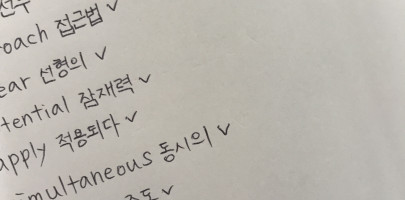 oach 접근법 ✓
ear 선형의 ✓
tential 잠재력 ✓
apply 적용되다 ✓
imultaneous 동시의 ✓